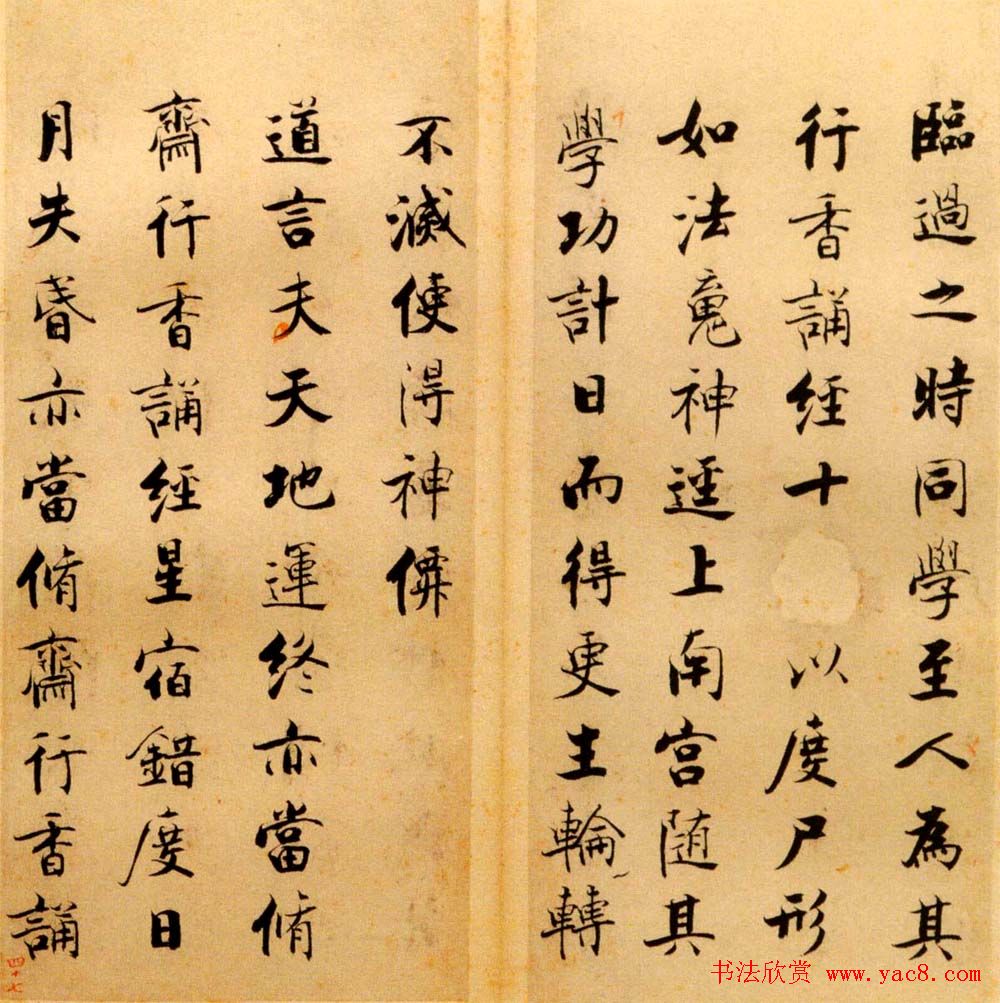 臨過之時同學至人為其
行香誦經十 以度尸形
如法䰟神逕上南宮随其
學功計日而得更生輪轉
不滅使得神僊
道言夫天地運終亦當脩
齋行香誦經星宿錯度日
月失昏亦當脩齋行香誦
四十七
书法欣赏 www.yac8.com